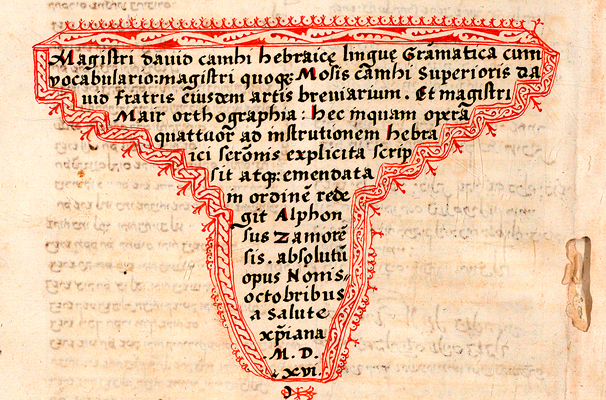 Magistri dauid camhi hebraice lingue Grãmatica cum
vocabulario: magistri quoq; Mosis cãmhi Superioris da
uid fratris eiusdem artis breuiarium. Et magistri
Mair orthographia: hec inquam operã
quattuor ad instrutionem hebra
ici sermõnis explicita scrip
sit atq; emendata
in ordinẽ rede
git Alphon
sus Zamorẽ
sis. absolutũ
opus Nonis
octobribus
a salute
xp̃iana
M. D.
xvi.